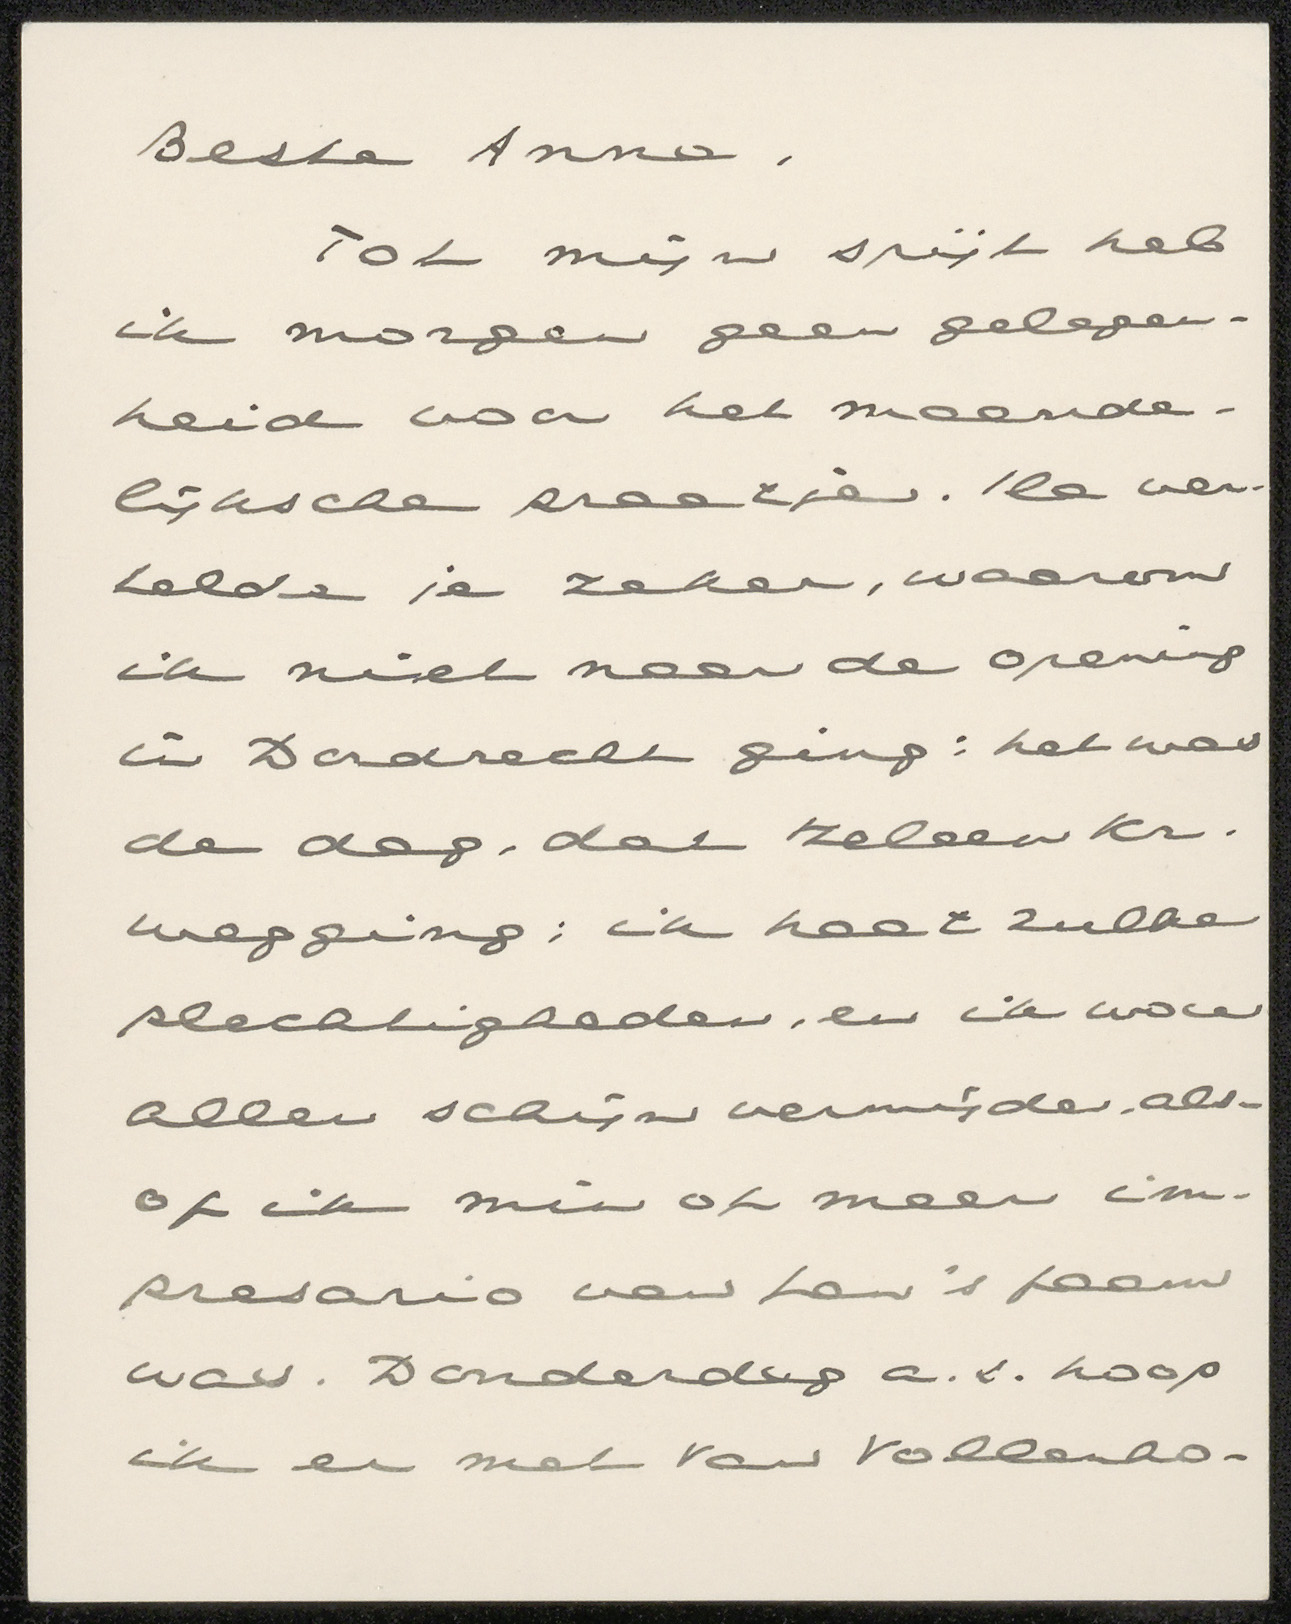 Beste Anna,
Tot mijn spijt heb
ik morgen geen gelegen-
heid voor het maande-
lijksche praatje. Ile ver-
telde je zeker, waarom
ik niet naar de opening
in Dordrecht ging: het was
de dag, dat Zeleen Kr.
wegging; ik haat zulke
plechtigheden, en ik wou
allen schijn vermijden, als-
of ik min of meer im-
presario van Han's faam
was. Donderdag a.s. hoop
ik er met Van Vollenho-